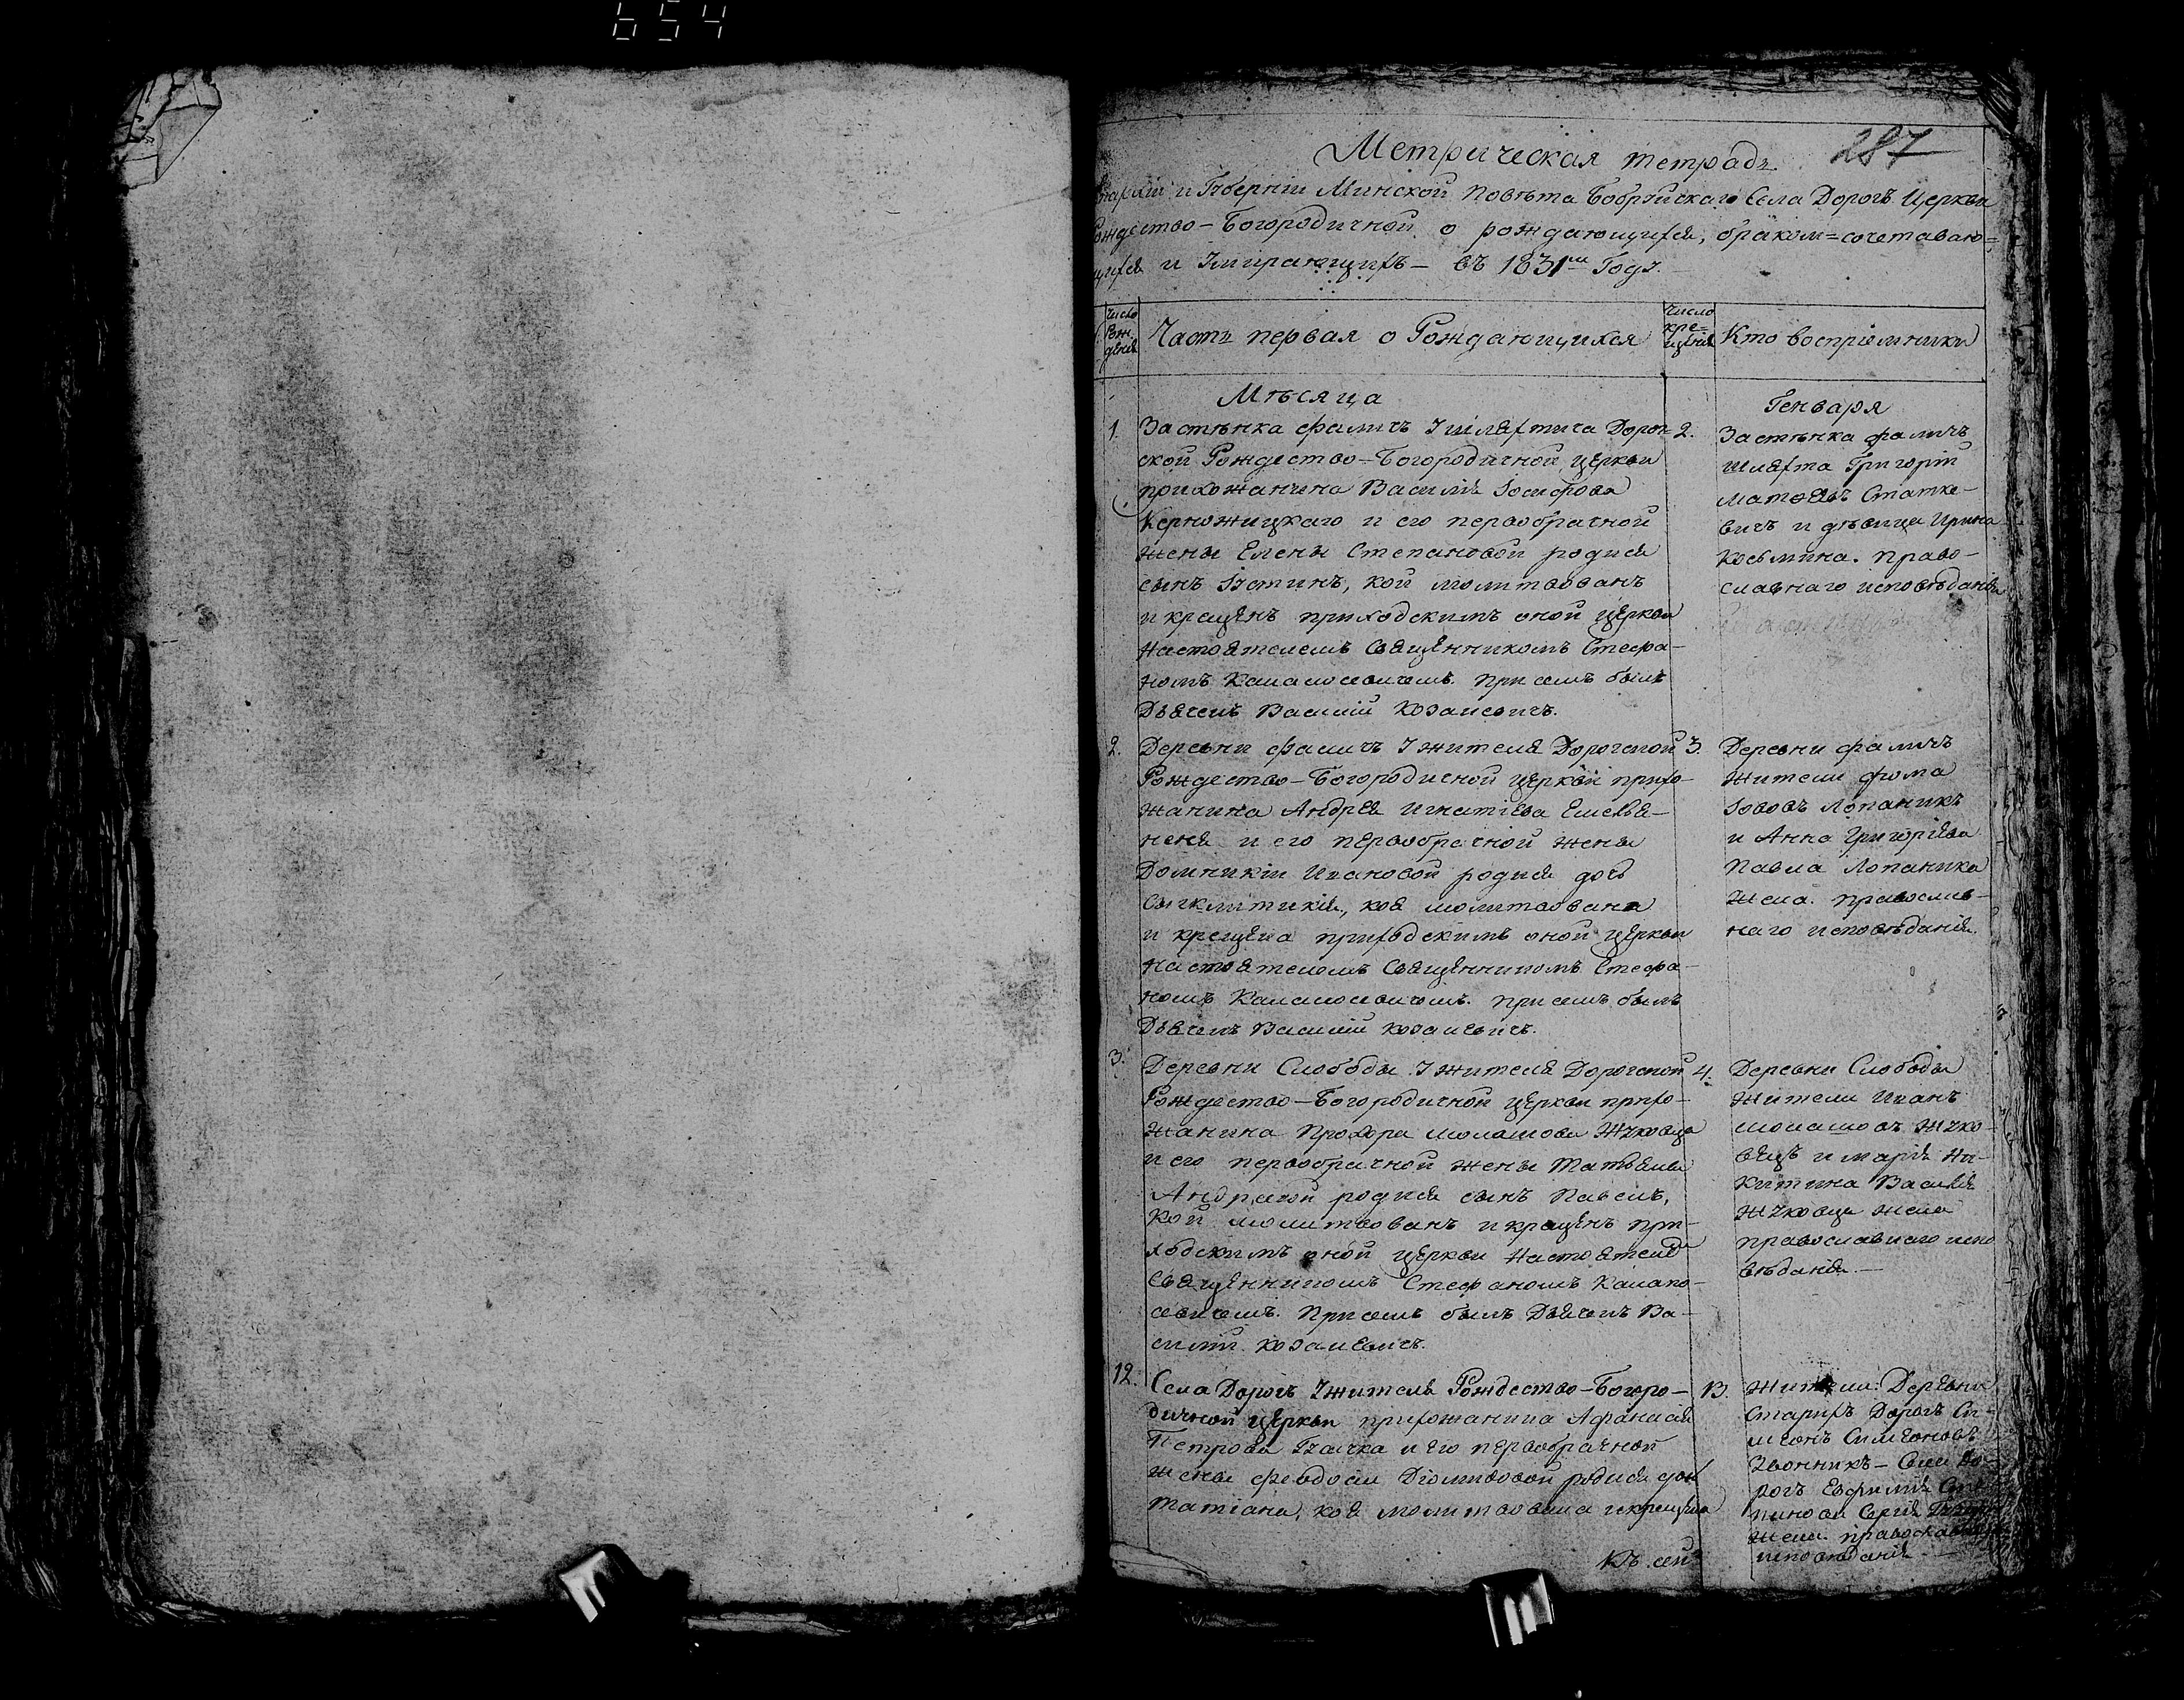 654
287
Метрическая тетрадь
и Губерніи Минской Повѣта Бобруйскаго Села Дорогъ Церкви
Рождество-Богородичной о рождающихся, бракомъ=сочетаваю=
щихся и Умирающихъ — въ 1831м Году.
Число Рож.денія
Часть первая о Рождающихся
Число кре= щенія
Кто воспріемники
Мѣсяца
Генваря
1. Застѣнка фаличъ Шляхтича Дорог=
ской Рождество-Богородичной церкви
прихожанина Василія Іосифова
Керножицкаго и его первобрачной
жены Елены Степановой родися
сынъ Іустинъ, кой молитвованъ
и крещенъ приходскимъ оной церкви
Настоятелемъ Священникомъ Стефа-
номъ Калапосевичемъ. При семъ былъ
Дьячекъ Василій Козаневичъ.
2. Застѣнка фаличъ
шляхта Григорій
Матвѣевъ Статке-
вичъ и дѣвица Ирина
Косьмина. Право-
славнаго исповѣданія
2. Деревни фаличъ жителя Дорогской
Рождество-Богородичной церкви прихо-
жанина Андрея Игнатіева
и его первобрачной жены
Домникіи Ивановой родися дочь
Сынклитикія, коя молитвована
и крещена приходскимъ оной церкви
Настоятелемъ Священникомъ Стефа-
номъ Калапосевичемъ. При семъ былъ
Дьячекъ Василій Козаневичъ.
3. Деревни фаличъ
жители фома
Іововъ Лопаникъ
и Анна Григоріева
Павла Лопаника
Жена. православ-
наго исповѣданія.
3. Деревни Слободы жителя Дорогской
Рождество-Богородичной церкви прихо-
жанина Прохора Жуковца
и его первобрачной жены Татьяны
Андреевой родися сынъ Павелъ,
кой молитвованъ и крещенъ при-
ходскимъ оной церкви Настоятелемъ
Священникомъ Стефаномъ Калапо-
севичемъ. При семъ былъ Дьячекъ Ва-
силій Козаневичъ.
4. Деревни Слободы
Жители Иванъ
Жуко-
вецъ и марія Ни-
китина Василія
Жуковца жена
православнаго испо
вѣданія. —
12. Села Дорогъ жителя Рождество-Богоро-
дичной церкви прихожанина Афанасія
Петрова и его первобрачной
жены феодосіи родися дочь
татіана, коя молитвована и крещена
13. Жители Деревни
Старыхъ Дорогъ Си-
меонъ Симеоновъ
Звонникъ — Села До-
рогъ Евфимія
Сергія
жена православнаго
исповѣданія —
Къ сей